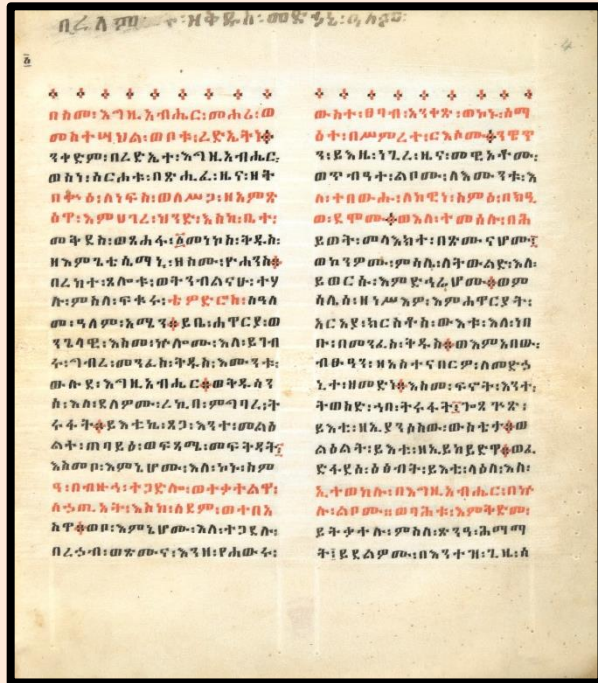 በረለም፡ ዘቅዱስ፡ መድኃኔ፡ ዓለም፡
በስመ፡ እግዚአብሔር፡ መሐሪ፡ ወ
መስተሣህል፡ ወቦቱ፡ ረድኤትነ፨
ንቀድም፡ በረድኤተ፡ እግዚአብሔር፡
ወሰነ፡ ስርሐቱ፡ በጽሒፈ፡ ዜና፡ ዘት
በቍዕ፡ ለነፍስ፡ ወለሥጋ፡ ዘአምጽ
ዕዋ፡ እምሀገረ፡ ህንድ፡ እስከ፡ ቤተ፡
መቅደስ፡ ወጸሐፋ፡ ፩መነኮስ፡ ቅዱስ፡
ዘእምጌቴሴማኒ፡ ዘስሙ፡ ዮሐንስ፨
በረከተ፡ ጸሎቱ፡ ወትንብልናሁ፡ ተሃ
ሉ፡ ምስለ፡ ፍቁሩ፡ ቴዎድሮስ፡ ለዓለ
መ፡ ዓለም፡ አሜን፨ ይቤ፡ ሐዋርያ፡ ወ
ንጌላዊ፡ እስመ፡ ኵሎሙ፡ እለ፡ ይገብ
ሩ፡ ግብረ፡ መንፈስ፡ ቅዱስ፡ እሙንቱ፡
ውሉደ፡ እግዚአብሔር፨ ወቅዱሳን
ሰ፡ እለ፡ ደለዎሙ፡ ረኪበ፡ ምግባረ፡ ት
ሩፋት፨ ይእቲኬ፡ ጸጋ፡ እንተ፡ መልዕ
ልት፡ ጠባይዕ፡ ወፍጻሜ፡ መፍትዳት፤
እስመቦ፡ እምኔሆሙ፡ እለ፡ ኮኑ፡ ስም
ዓ፡ በብዙኃ፡ ተጋድሎ፡ ወተቃተልዋ፡
ለኃጢአት፡ እስከ፡ ለደም፡ ወተበአ
ስዋ፨ ወቦ፡ እምኔሆሙ፡ እለ፡ ተጋደሉ፡
በረኃብ፡ ወጽሙና፡ እንዘ፡ የሐውሩ፡
ውስተ፡ ፀባብ፡ አንቀጽ፡ ወኮኑ፡ ሰማ
ዕተ፡ በሥምረተ፡ ርእሶሙ፨
ን፡ ይእዜ፡ ነገረ፡ ዜና፡ መዊኦቶሙ፡
ወጥብዓተ፡ ልቦሙ፡ ለእሙንቱ፡ እ
ለ፡ ተበውሑ፡ ለከዊነ፡ ስምዕ፡ በክዒ
ወ፡ ደሞሙ፨ ወእለ፡ ተመሰሉ፡ በሕ
ይወት፡ መላእክተ፡ በጽሙናሆሙ፤
ወከንዎሙ፡ ምስለ፡ ለትውልድ፡ እለ፡
ይወርሱ፡ እምድኅሬሆሙ፨ ወም
እምሐዋርያት፡
አርአያ፡ ክርስቶስ፡ ውእቱ፡ እለ፡ ነበ
ቡ፡ በመንፈስ፡ ቅዱስ፨ ወእምአበው፡
ብፁዓን፡ ዘአስተናበርዎ፡ ለመድኃ
ኒተ፡ ዘመድነ፨ እስመ፡ ፍኖት፡ እንተ፡
ትወስድ፡ ኀበ፡ ትሩፋት፤
ይእቲ፡ ውስቴታ፨ ወ
ልዕልት፡ ይእቲ፡ ዘኢይከይድዋ፨ ወፈ
ድፋደሰ፡ ዕፅብት፡ ይእቲ፡ ላዕለ፡ እለ፡
ኢተወከሉ፡ በእግዚአብሔር፡ በኵ
ሉ፡ ልቦሙ። ወባሕቱ፡ እምቅድመ፡
ይትቃተሉ፡ ምስለ፡ ጽንዓ፡ ሕማማ
ት፤ ይደልዎሙ፡ በእንተዝ፡ ጊዜ፡ ሰ